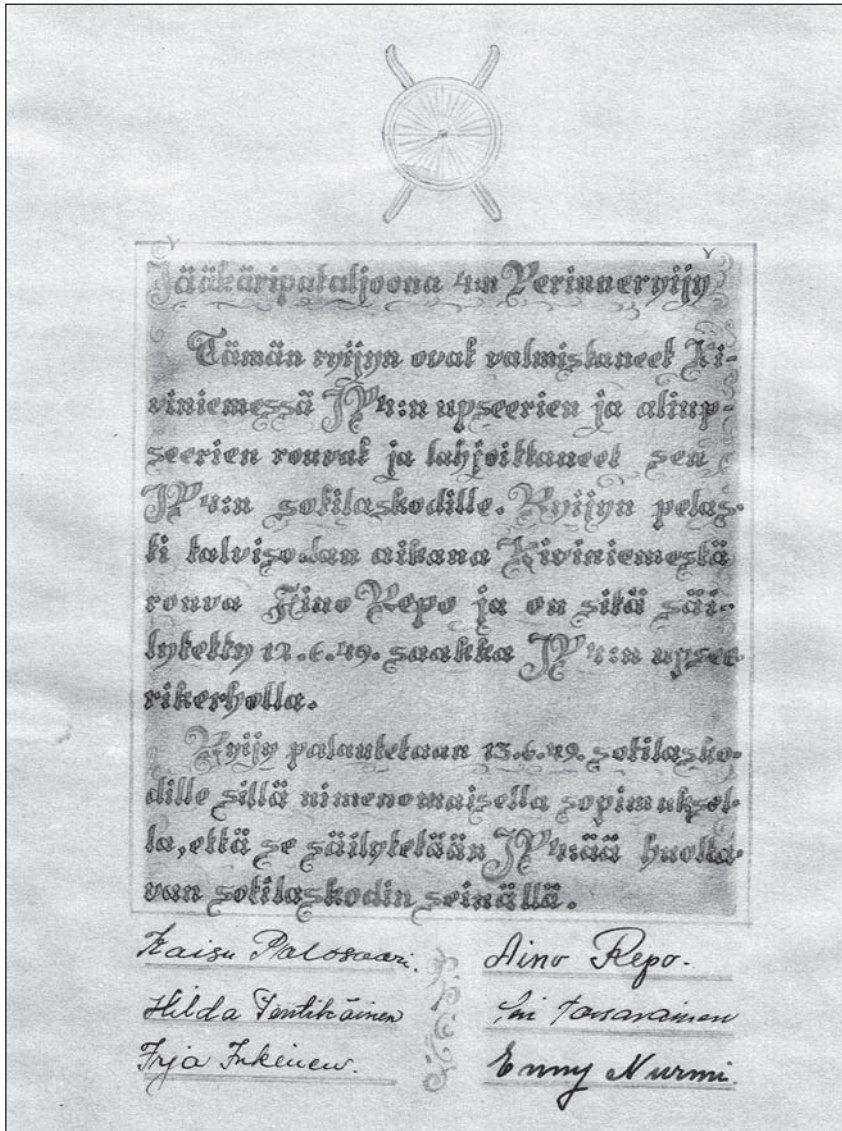 Jääkäripataljoona 4:n Perinneryijy
Tämän ryijyn ovat valmistaneet Ki-
viniemessä JP4:n upseerien ja aliup-
seerien rouvat ja lahjoittaneet sen
JP4:n sotilaskodille. Ryijyn pelas-
ti talvisodan aikana Kiviniemestä
rouva Aino Repo ja on sitä säi-
lytetty 12.6.49. saakka JP4:n upsee
rikerholla.
Ryijy palautetaan 13.6.49. sotilasko-
dille sillä nimenomaisella sopimuksel-
la, että se säilytetään JP4:ää huolta-
van sotilaskodin seinällä.
Kaisu Palosaari. Aino Repo.
Hilda Pentikäinen
Irja Inkinen. Enny Nurmi.